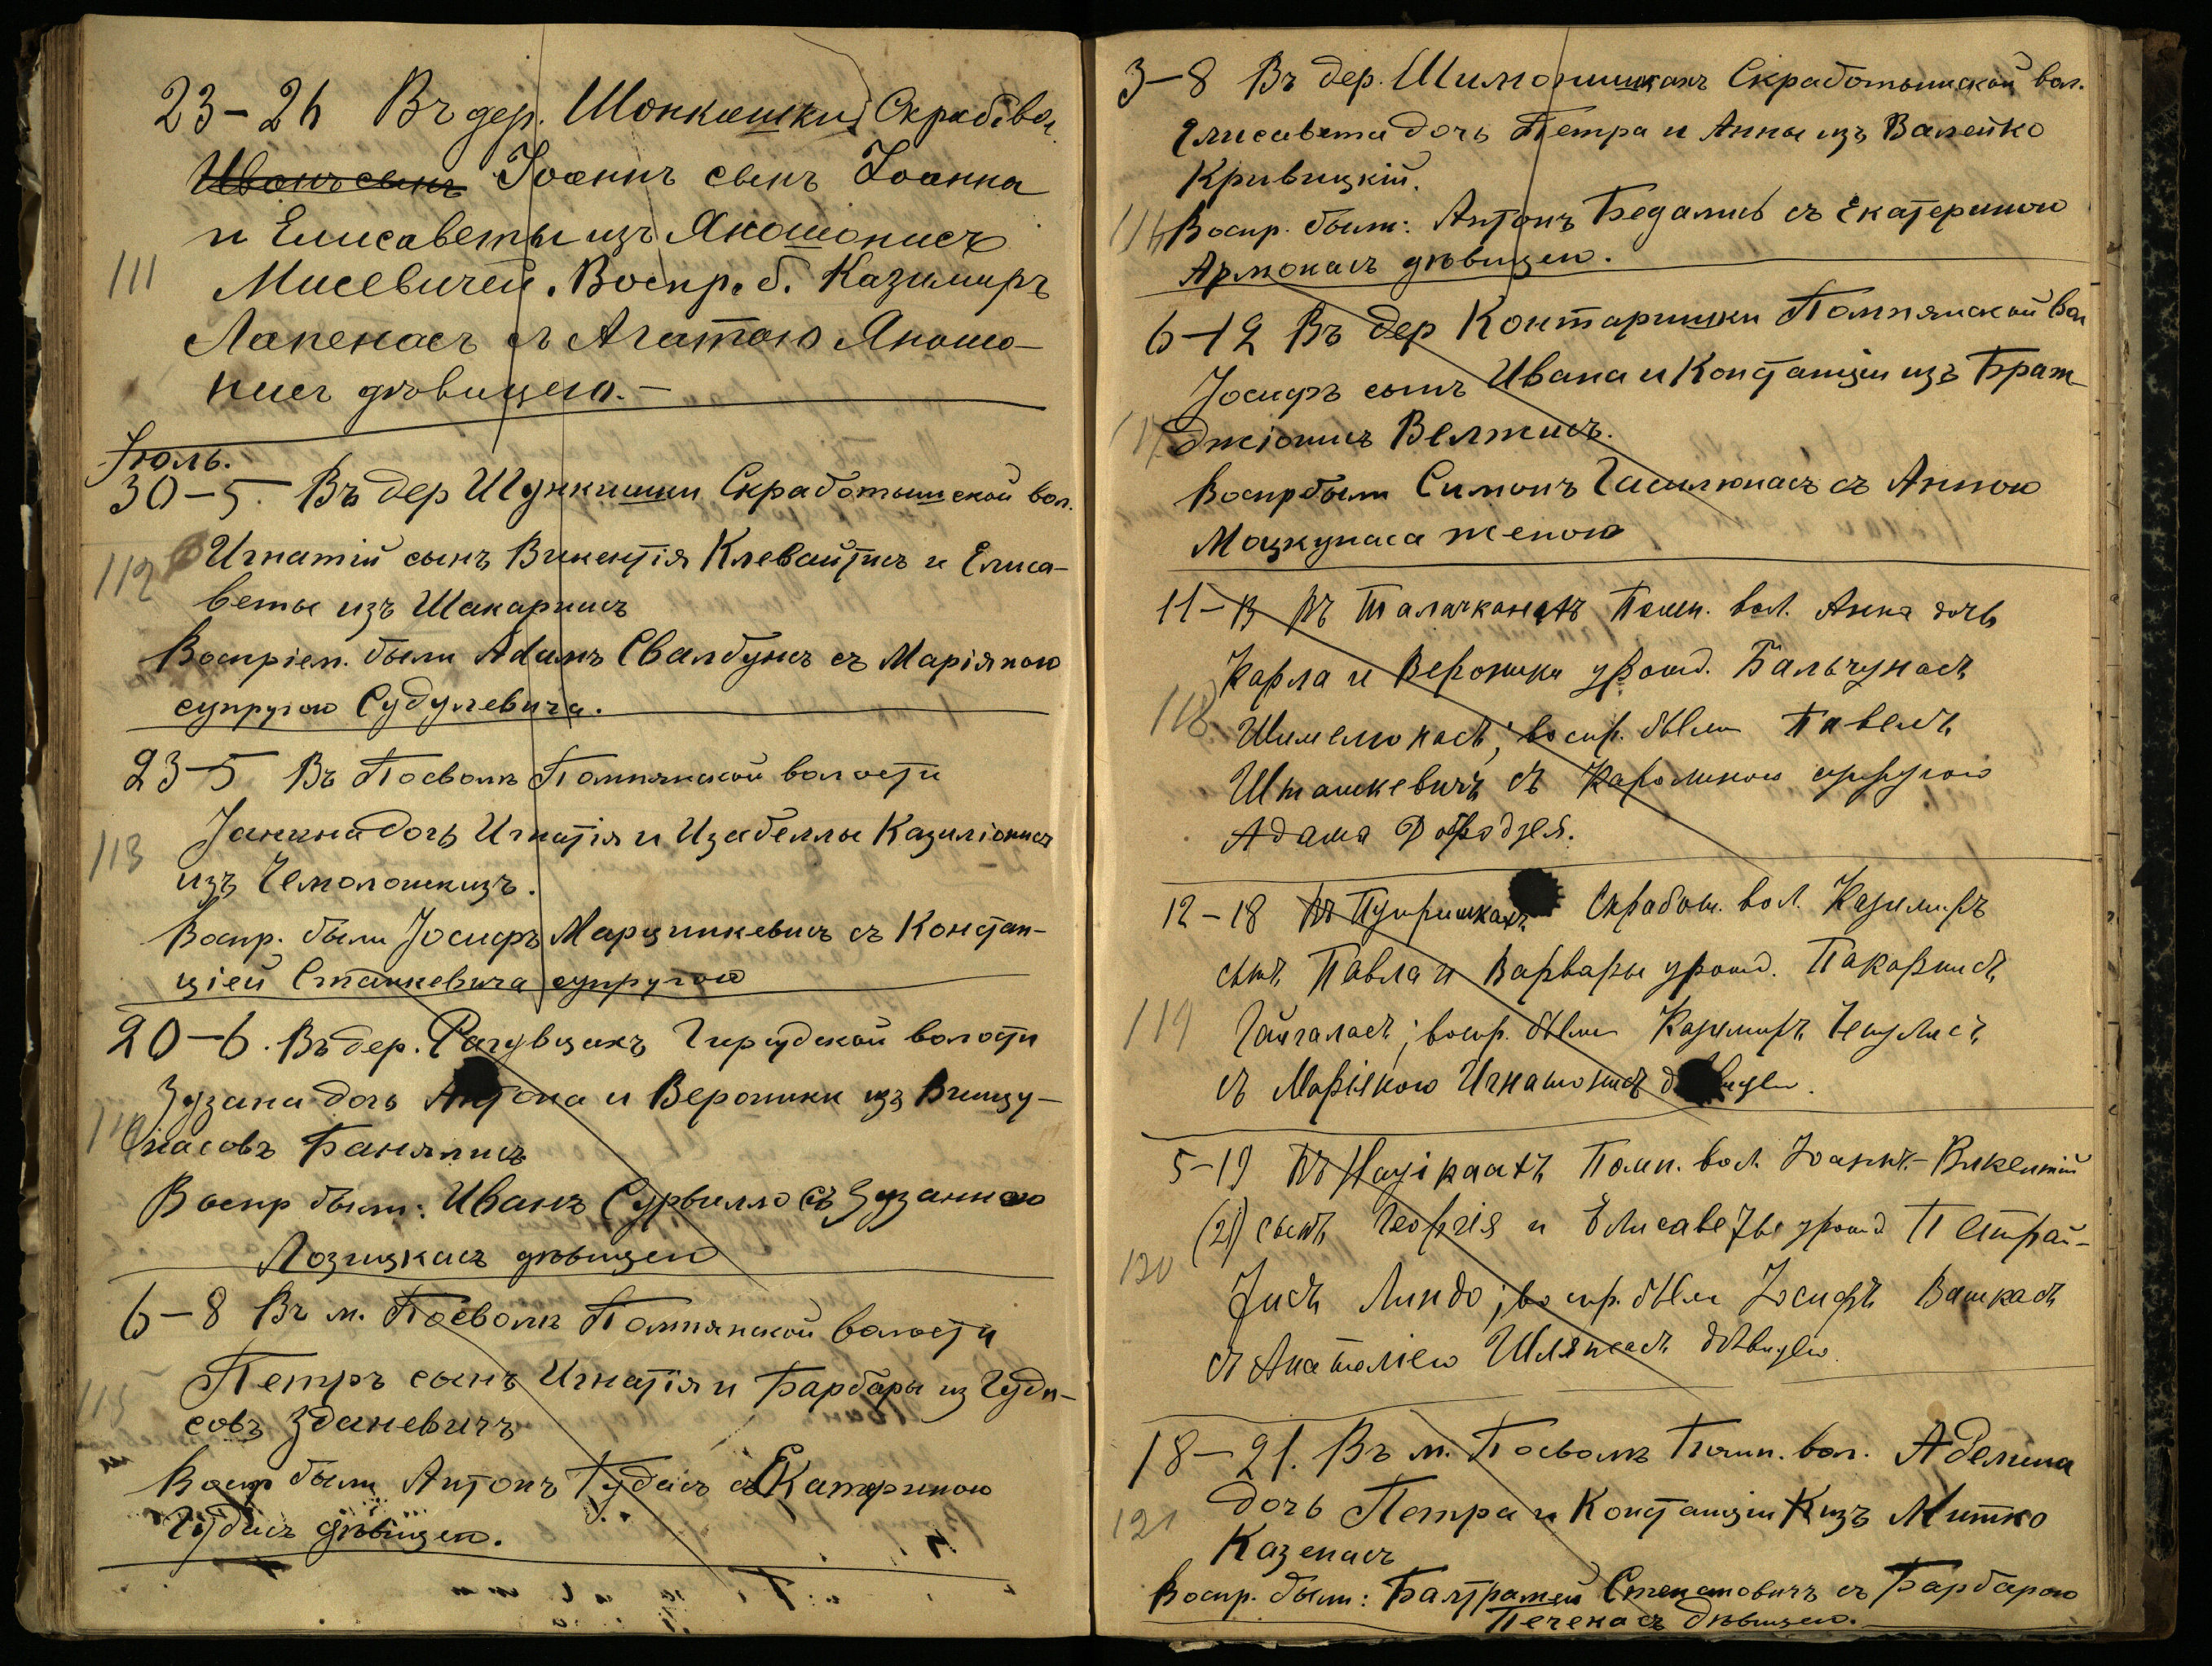 23–26 Въ дер. Шонкашки Скраб. вол.
Иванъ сынъ Іоаннъ сынъ Іоанна
и Елисаветы изъ Яношонисъ
111
Мисевичей. Воспр. б. Казимиръ
Лапенасъ съ Агатою Яношо-
нисъ дѣвицею.–
Іюль.
30–5. Въ дер Шункишки Скработышской вол.
112 Игнатій сынъ Викентія Клевайтисъ и Елиса-
веты изъ Шакарнисъ
Воспріем. были Адамъ Свалбунсъ съ Маріяною
супругою Судулевича.
23–5 Въ Посволѣ Помпянской волости
113 Янина дочь Игнатія и Изабеллы Казиліонисъ
изъ Чемолошкизъ.
Воспр. были Іосифъ Марцинкевичъ съ Констан-
ціей Станкевича супругою
20–6. Въ дер. Рагувцахъ Гирудской волости
Зузана дочь Антона и Вероники изъ Винцу-
114 насовъ Банялисъ
Воспр были: Иванъ Сурвилло съ Зузанною
Лозицкасъ дѣвицей
6–8 Въ м. Посволѣ Помпянской волости
115 Петръ сынъ Игнатія и Барбары из Гуди-
совъ Зданевичъ
Воспр были Антонъ Гудасъ съ Екатериною
Гудисъ дѣвицею.
3–8 Въ дер. Шимонишкахъ Скработышской вол.
Елисавета дочь Петра и Анны изъ Валейко
Кривицкій.
116 Воспр. были: Антонъ Бедалисъ съ Екатериною
Армонасъ дѣвицею.
6–12 Въ дер Контаришки Помпянской вол
Іосифъ сынъ Ивана и Констанціи изъ Браж-
117 джіонисъ Велжисъ.
Воспр были Симонъ Гасилюнасъ съ Анною
Мацкунаса женою
11–13 Въ Талачконяхъ Помп. вол. Анна дочь
Карла и Вероники урожд. Бальчунасъ
118 Шимелюнасъ; воспр. были Павелъ
Шташкевичъ съ Каролиною супругою
Адама Дородзея.
12–18 Въ Путришкахъ Скработ. вол. Казимиръ
сынъ Павла и Варвары урожд. Пакарнисъ
119 Гайгаласъ; воспр. были Казимиръ Чепулисъ
съ Маріяною Игнатонисъ дѣвицею.
5–19 Въ Помп. вол. Іоаннъ-Викентій
(21) сынъ Георгія и Елисаветы урожд Петрай-
120 тисъ Линдо; воспр. были Іосифъ Вашкасъ
съ Анатоліею Шляжасъ дѣвицею.
18–21. Въ м. Посволѣ Помп. вол. Аделина
121 дочь Петра и Констанціи изъ Митко
Казенасъ
Воспр. были: Балтрамей Степановичъ съ Барбарою
Печенасъ дѣвицею.